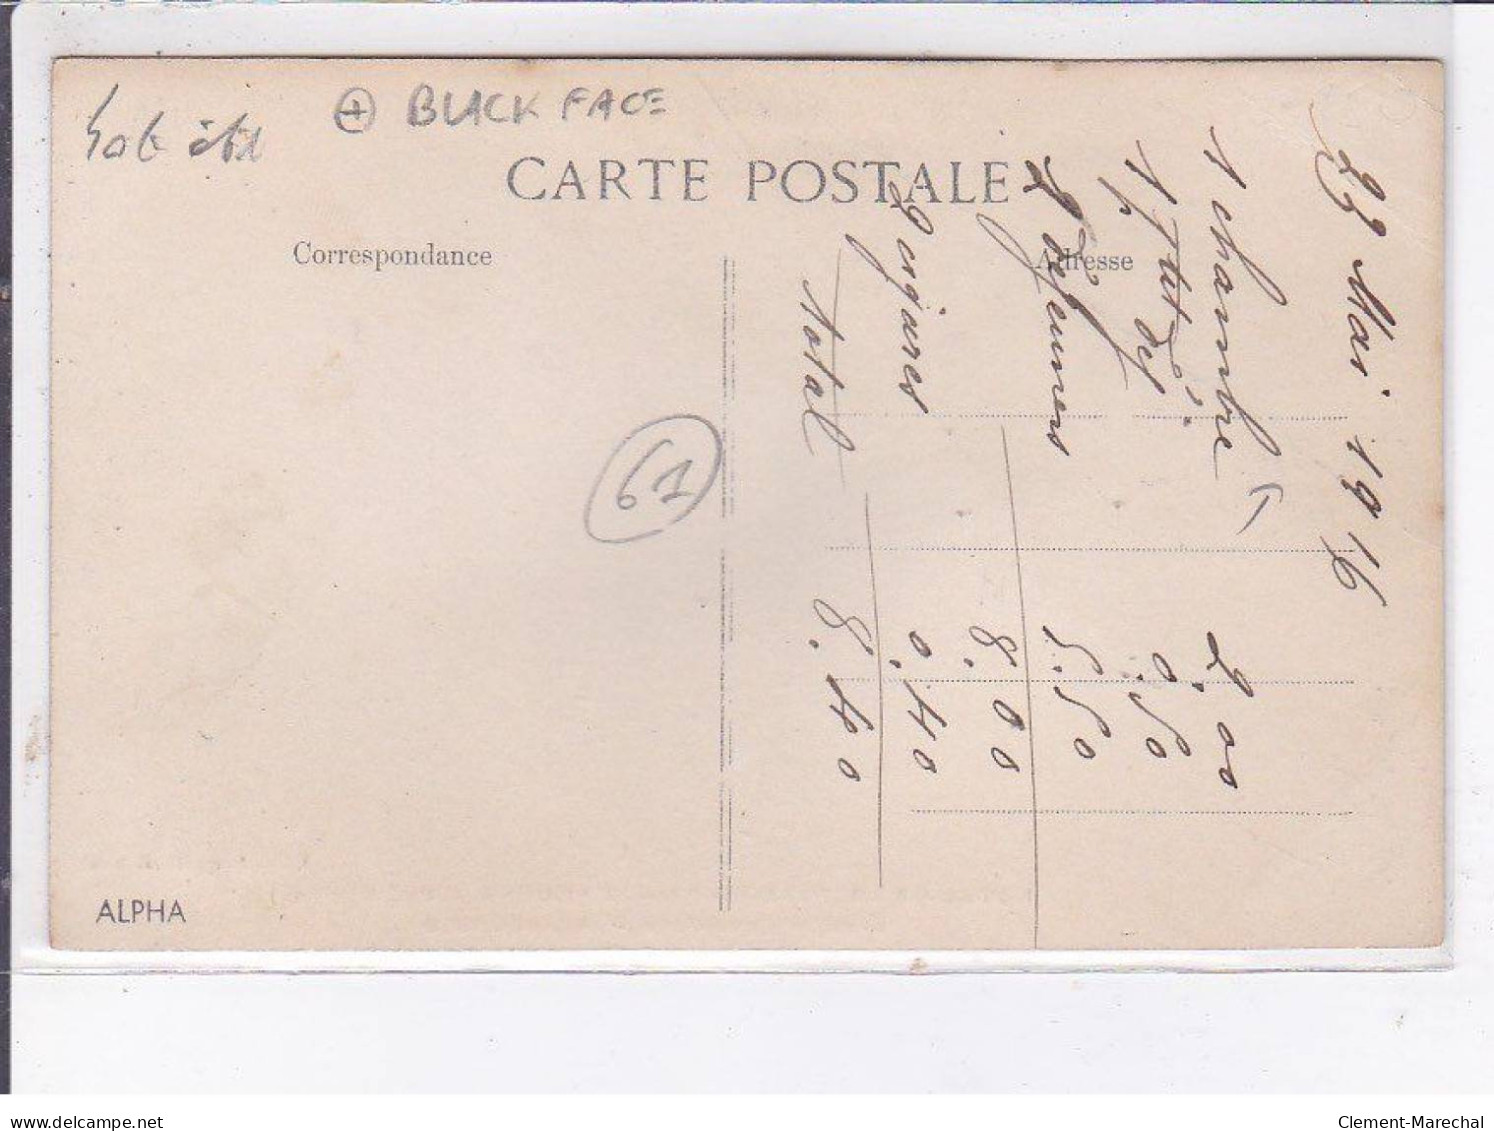 ⊕ BLACK FACE
CARTE POSTALE
Correspondance
Adresse
23 Mai 1916
1 chambre 2.00
1 ptit déj 0.50
2 déjeuners 5.50
8.00
2 cigares 0.40
Total 8.40
61
ALPHA
delcampe.net
Clement-Marechal